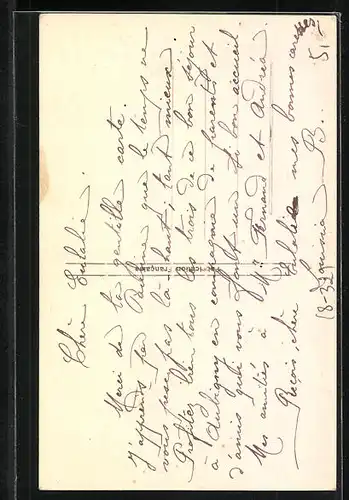 Chère Eulalie.
Merci de ta gentille carte.
J'apprends par Paulme que le temps ne
vous pèse pas là-haut ; tant mieux.
Profitez bien tous les trois de ce bon séjour
à Aubigny en compagnie de parents et
d'amis qui vous font un si bon accueil.
Mes amitiés à Mrs Fernand et André.
Reçois, chère Eulalie mes bonnes caresses
Fabrication Française